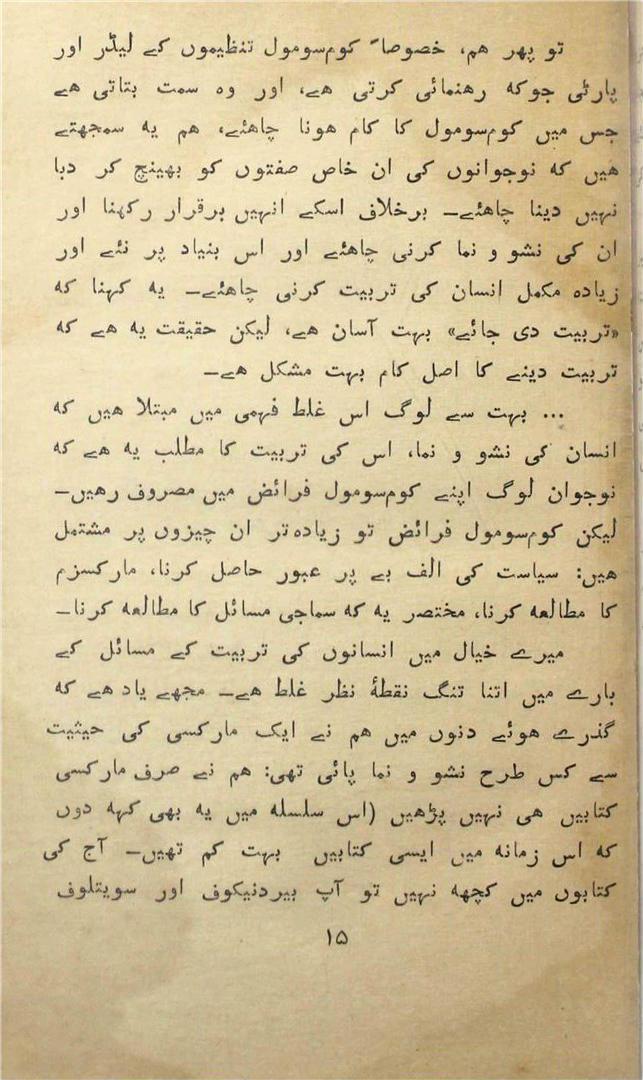 تو پھر ھم، خصوصاً کوم‌سومول تنظیموں کے لیڈر اور
پارٹی جوکہ رھنمائی کرتی ھے، اور وہ سمت بتاتی ھے
جس میں کوم‌سومول کا کام ھونا چاھئے، ھم یہ سمجھتے
ھیں کہ نوجوانوں کی ان خاص صفتوں کو بھینچ کر دبا
نہیں دینا چاھئے۔ برخلاف اسکے انہیں برقرار رکھنا اور
ان کی نشو و نما کرنی چاھئے اور اس بنیاد پر نئے اور
زیادہ مکمل انسان کی تربیت کرنی چاھئے۔ یہ کہنا کہ
«تربیت دی جائے» بہت آسان ھے، لیکن حقیقت یہ ھے کہ
تربیت دینے کا اصل کام بہت مشکل ھے۔
... بہت سے لوگ اس غلط فہمی میں مبتلا ھیں کہ
انسان کی نشو و نما، اس کی تربیت کا مطلب یہ ھے کہ
نوجوان لوگ اپنے کوم‌سومول فرائض میں مصروف رھیں۔
لیکن کوم‌سومول فرائض تو زیادہ‌تر ان چیزوں پر مشتمل
ھیں: سیاست کی الف بے پر عبور حاصل کرنا، مارکسزم
کا مطالعہ کرنا، مختصر یہ کہ سماجی مسائل کا مطالعہ کرنا۔
میرے خیال میں انسانوں کی تربیت کے مسائل کے
بارے میں اتنا تنگ نقطۂ نظر غلط ھے۔ مجھے یاد ھے کہ
گذرے ھوئے دنوں میں ھم نے ایک مارکسی کی حیثیت
سے کس طرح نشو و نما پائی تھی: ھم نے صرف مارکسی
کتابیں ھی نہیں پڑھیں (اس سلسلہ میں یہ بھی کہہ دوں
کہ اس زمانہ میں ایسی کتابیں بہت کم تھیں۔ آج کی
کتابوں میں کچھہ نہیں تو آپ بیردنیکوف اور سویتلوف
۱۵